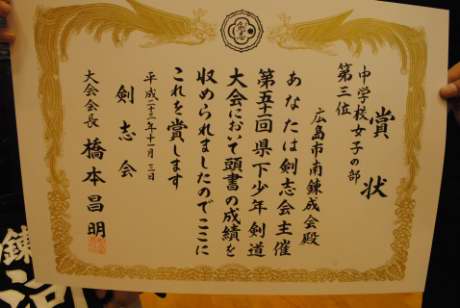 賞状
中学校女子の部
第三位
広島市南錬成会殿
あなたは剣志会主催
第五十一回県下少年剣道
大会において頭書の成績を
収められましたのでここに
これを賞します
平成二十三年十一月三日
剣志会
大会会長 橋本昌明
錬